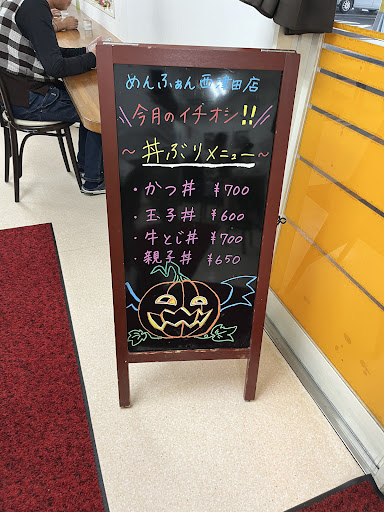 めんふぁん西津田店
今月のイチオシ!!
~丼ぶりメニュー~
・かつ丼 ¥700
・玉子丼 ¥600
・牛とじ丼 ¥700
・親子丼 ¥650